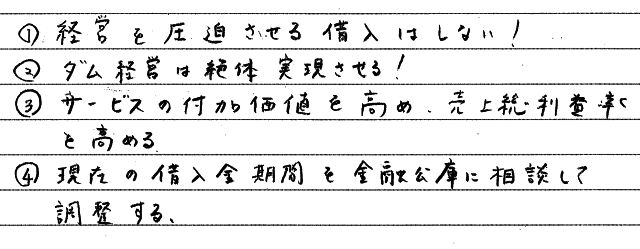 ① 経営を圧迫させる借入はしない!
② ダム経営は絶体実現させる!
③ サービスの付加価値を高め、売上総利益率
を高める
④ 現在の借入金期間を金融公庫に相談して
調整する、